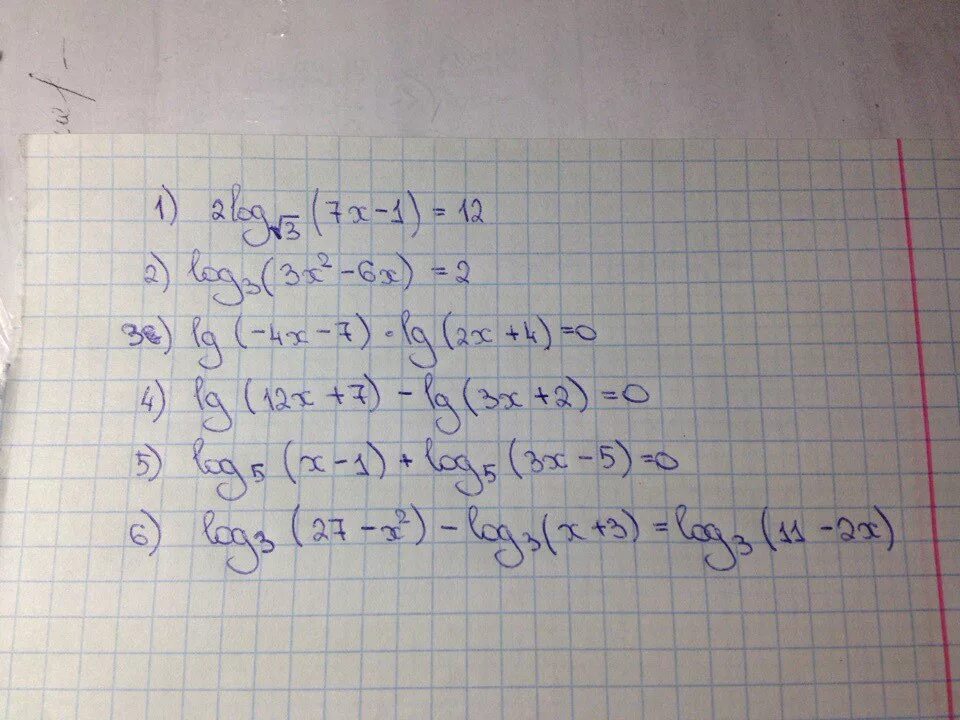 1) 2log√3 (7x-1) = 12
2) log3 (3x² - 6x) = 2
3) lg (-4x - 7) - lg (2x + 4) = 0
4) lg (12x + 7) - lg (3x + 2) = 0
5) log5 (x - 1) + log5 (3x - 5) = 0
6) log3 (27 - x²) - log3 (x + 3) = log3 (11 - 2x)